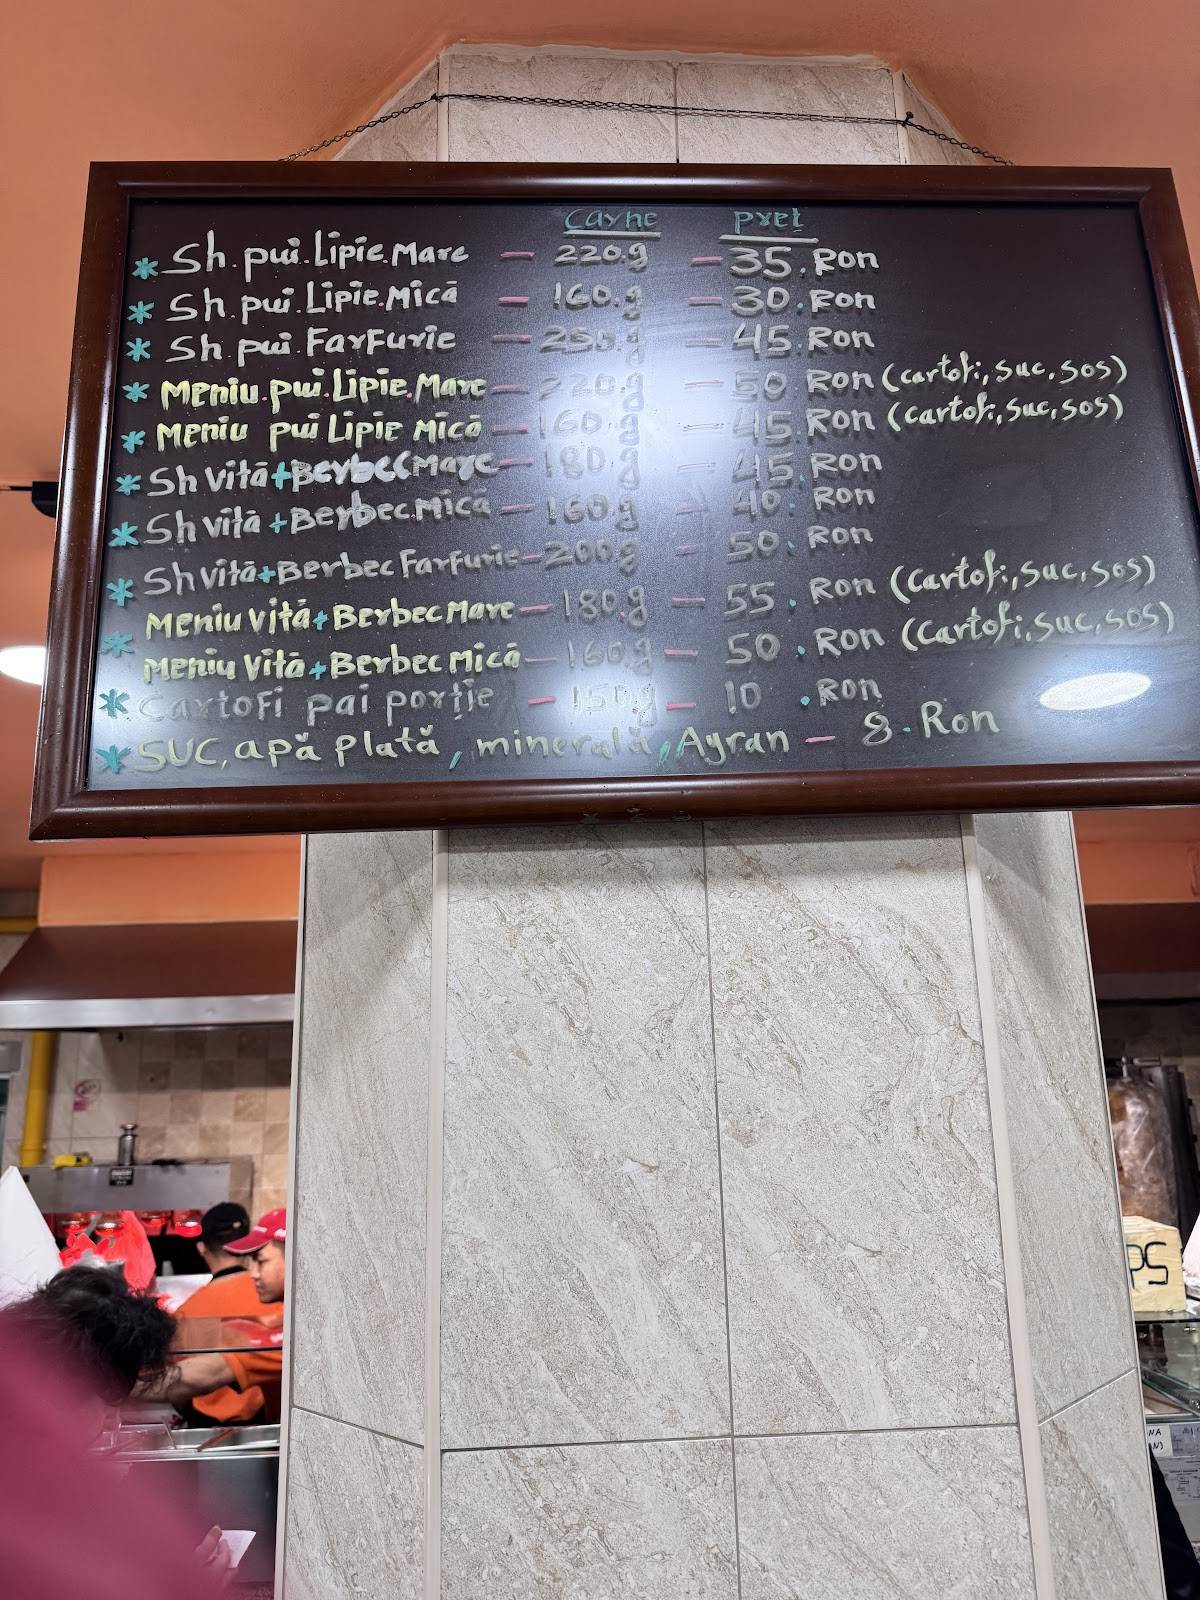 Carne preț
* Sh.pui.Lipie.Mare — 220.g — 35.Ron
* Sh.pui.Lipie.Mică — 160.g — 30.Ron
* Sh.pui.Farfurie — g — 45.Ron
* Meniu.pui.Lipie.Mare — 220.g — 50 Ron (cartofi,suc,sos)
* Meniu pui Lipie Mică — 160.g — 45.Ron (cartofi,suc,sos)
* Sh Vită+Berbec Mare — 180 g — 45.Ron
* Sh Vită+Berbec.Mică — 160.g — 40.Ron
* Sh Vită+Berbec Farfurie — 200g — 50.Ron
* Meniu Vită+Berbec Mare — 180.g — 55.Ron (Cartofi,suc,sos)
Meniu Vită+Berbec Mică — 160.g — 50.Ron (Cartofi,suc,sos)
* Cartofi pai porție — 150g — 10.Ron
* SUC, apă plată, minerală, Ayran — 8.Ron
PS